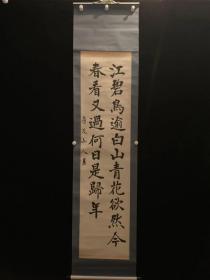 江碧鳥逾白山青花欲然今
春看又過何日是歸年
山人